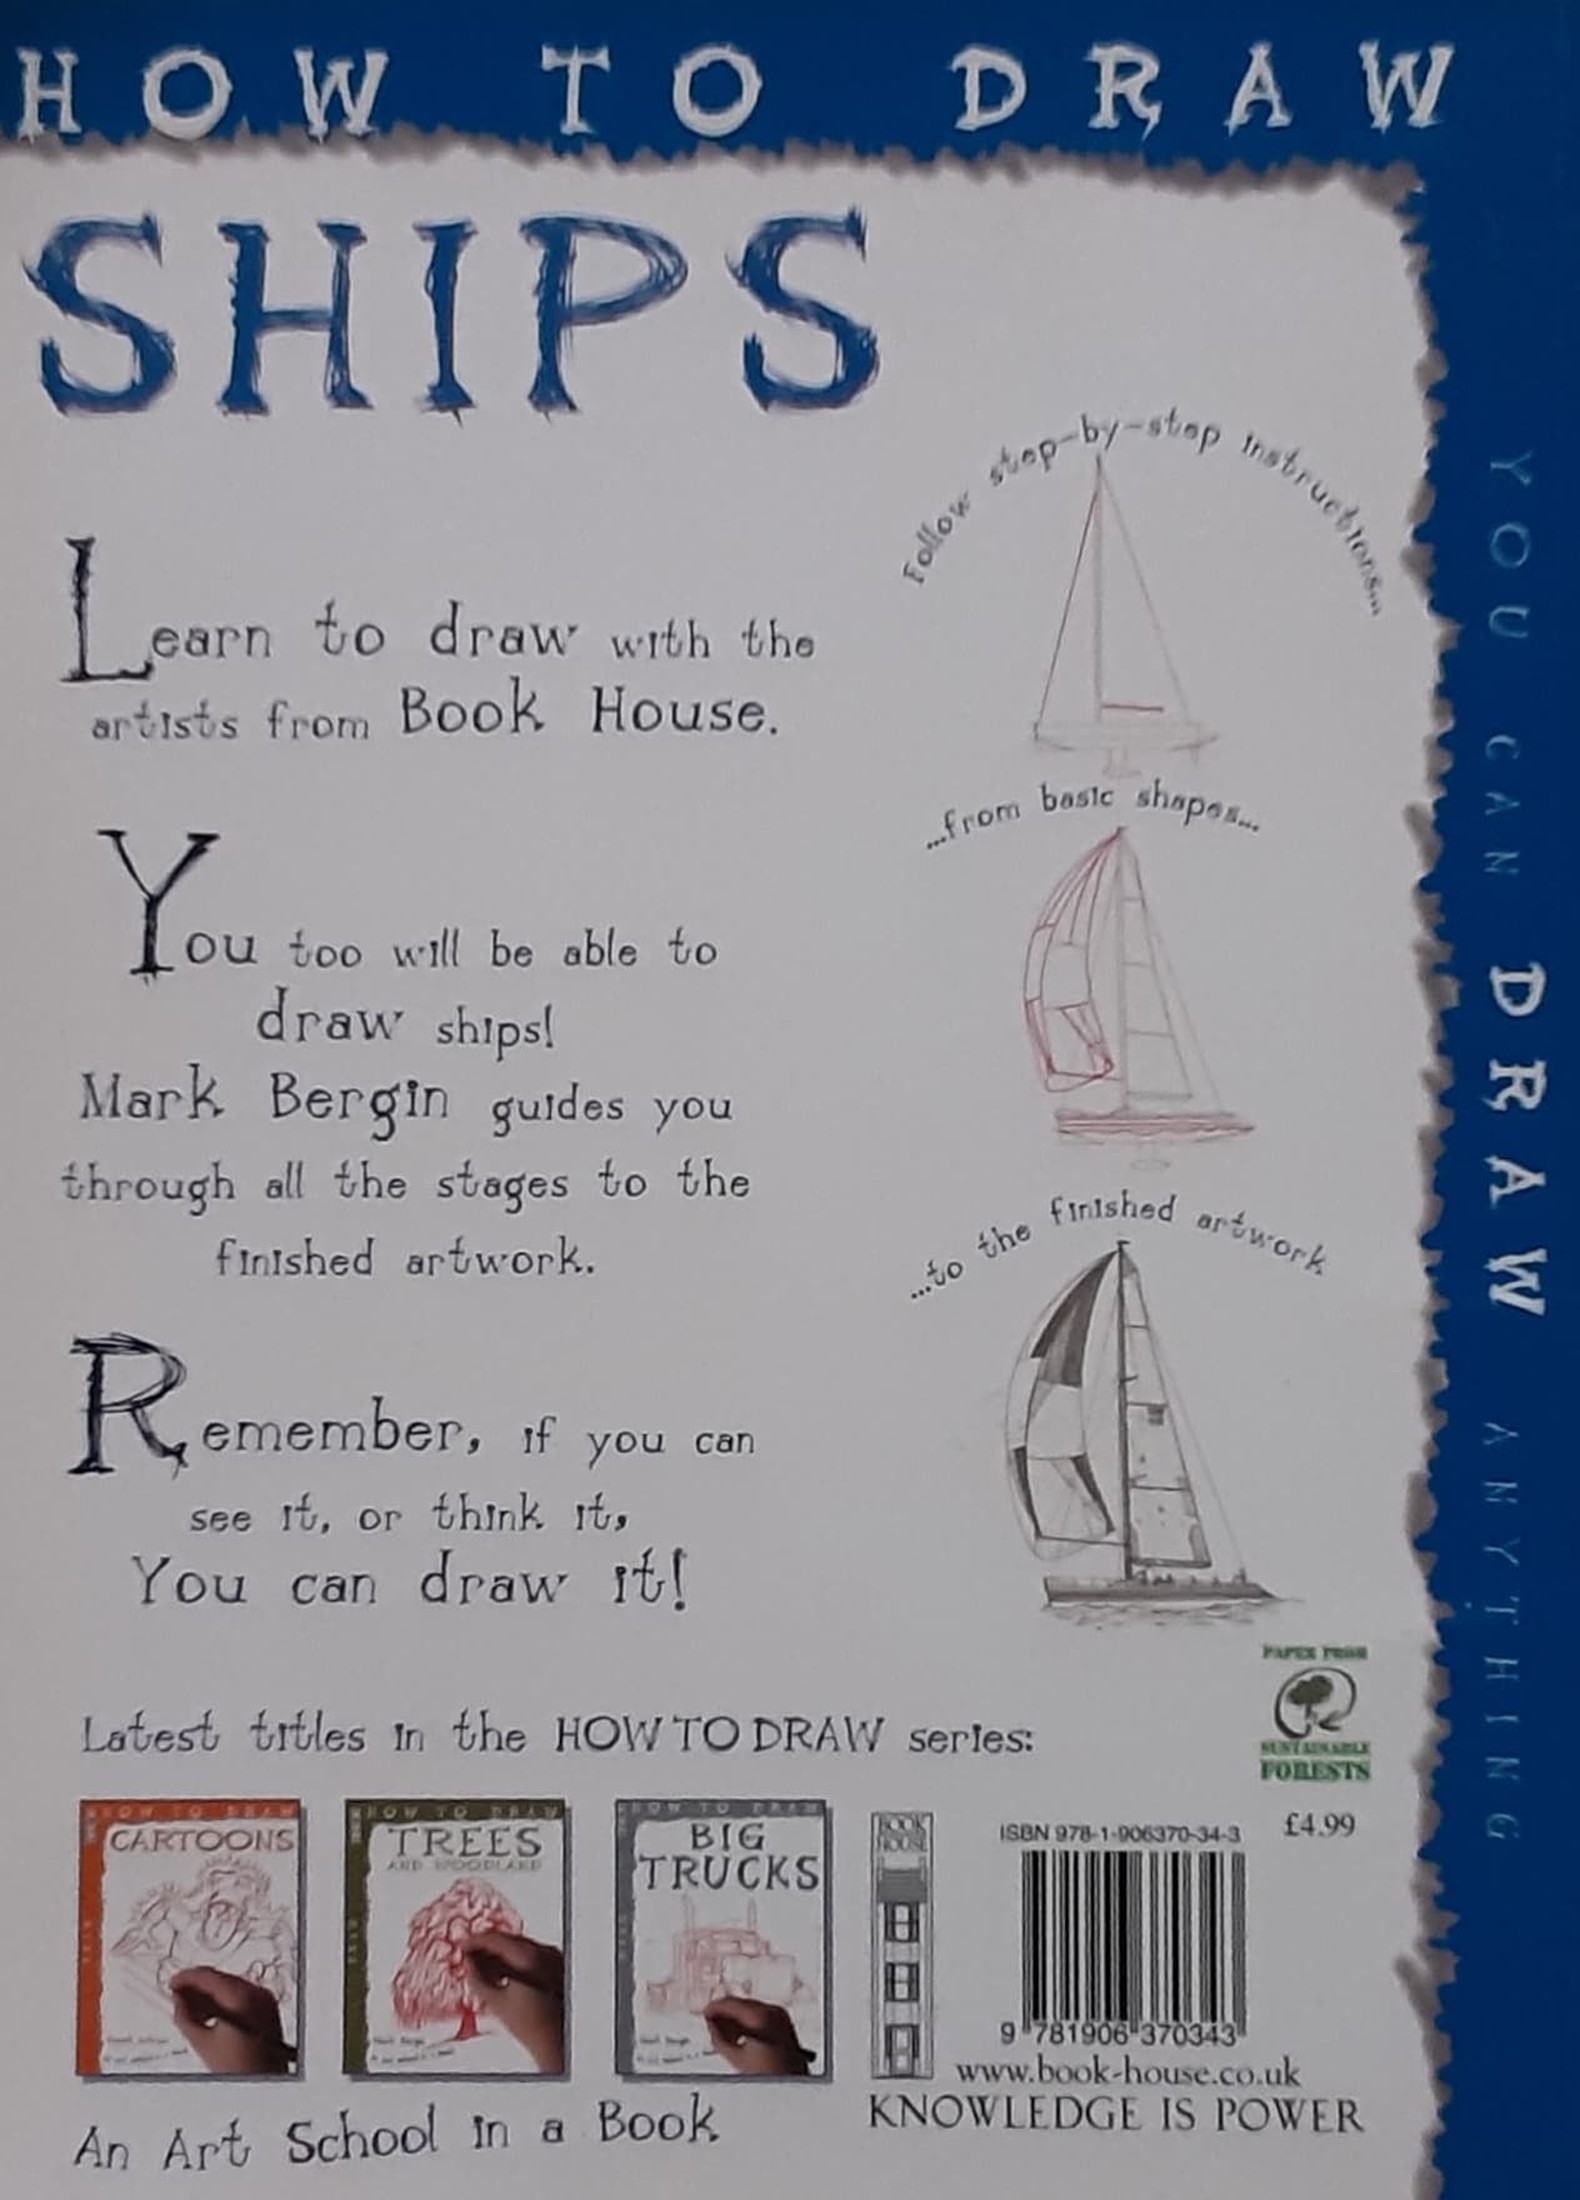 HOW TO DRAW
SHIPS
Follow step-by-step instructions...
Learn to draw with the
artists from Book House.
...from basic shapes...
You too will be able to
draw ships!
Mark Bergin guides you
through all the stages to the
finished artwork.
...to the finished artwork
Remember, if you can
see it, or think it,
You can draw it!
YOU CAN DRAW ANYTHING
PAPER FROM
SUSTAINABLE
FORESTS
Latest titles in the HOW TO DRAW series:
HOW TO DRAW
CARTOONS
HOW TO DRAW
TREES
AND WOODLAND
HOW TO DRAW
BIG
TRUCKS
BOOK
HOUSE
ISBN 978-1-906370-34-3
£4.99
9 781906 370343
www.book-house.co.uk
KNOWLEDGE IS POWER
An Art School in a Book